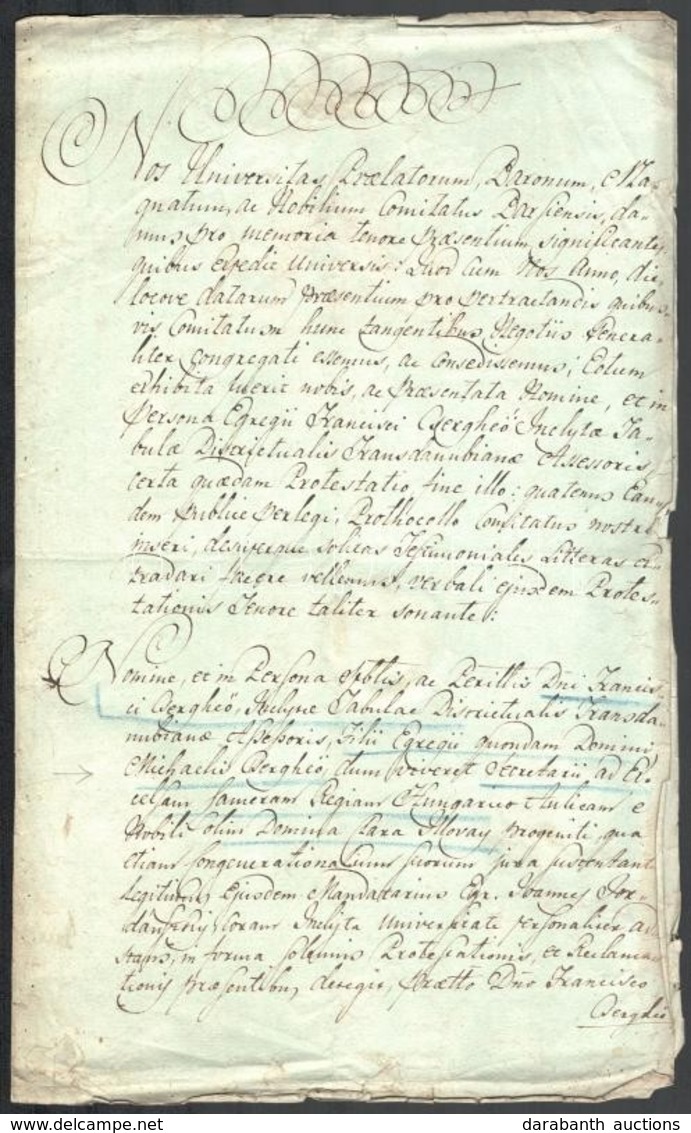 Nos Universitas Prælatorum, Baronum, e Ma-
gnatum, ac Nobilium Comitatus Barsiensis, da-
mus pro memoria tenore Præsentium significantes,
quibus expedit Universis: Quod cum Nos Anno, die,
locove datarum Præsentium pro pertractandis quibus-
vis Comitatum hunc tangentibus Negotiis Genera-
liter congregati essemus, ac Consedissemus; Eotum
exhibita fuerit nobis, ac Præsentata Nomine, et in
Persona Egregii Francisci Csergheö Inclytæ Ta-
bulæ Districtualis Transdanubianæ Assessoris,
certa quædam Protestatio fine illo: quatenus Ean-
dem publice Perlegi, Prothocollo Comitatus nostri
inseri, desuperque solitas Testimoniales Litteras ex-
tradari facere vellemus, verbali ejusdem Protes-
tationis Tenore taliter sonante:
Nomine, et in Persona Spblis, ac Perillis Dni Francis-
ci Csergheö, Inclytæ Tabulae Districtualis Transda-
nubianæ Assessoris, Filii Egregii quondam Domini
Michaelis Csergheö, dum viveret Secretarii, ad Ex-
celsam Cameram Regiam Hungarico Aulicam e
Nobili olim Domina Clara Illovay progeniti, qua
etiam Congenerationalium suorum jura sustentant
legitimus Ejusdem Mandatarius Egr. Joannes Jor-
dánszky coram Inclyta Universitate personaliter ad-
stans, in forma solennis Protestationis, et Reclama-
tionis præsentibus detegit, Prætto Dno Francisco
Cserghö
darabanth auctions